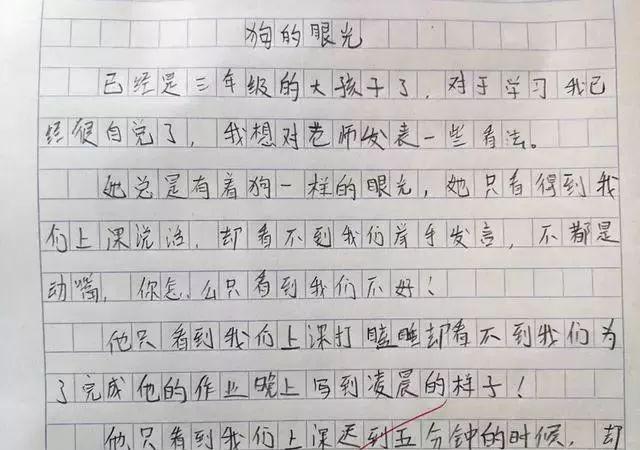 狗的眼光
已经是三年级的大孩子了，对于学习我已
经很自觉了，我想对老师发表一些看法。
她总是有着狗一样的眼光，她只看得到我
们上课说话，却看不到我们举手发言，不都是
动嘴，你怎么只看到我们不好！
他只看到我们上课打瞌睡却看不到我们为
了完成他的作业晚上写到凌晨的样子！
他只看到我们上课迟到五分钟的时候，却